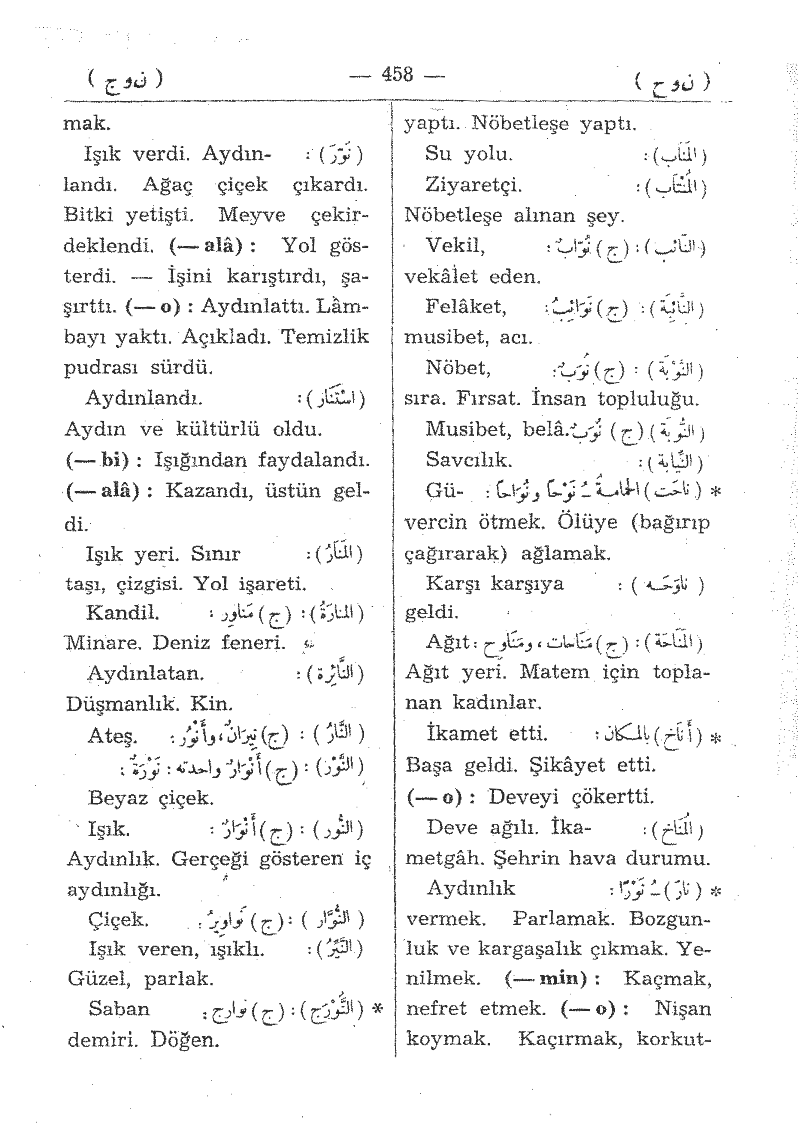 ( نوح ) — 458 — ( نوج )
yaptı. Nöbetleşe yaptı.
(المَنَاب): Su yolu.
(المُنْتَاب): Ziyaretçi.
Nöbetleşe alınan şey.
(النَّائِب): (ج) نُوَّابٌ: Vekil,
vekâlet eden.
(النَّائِبَة): (ج) نَوَائِبُ: Felâket,
musibet, acı.
(النَّوْبَة): (ج) نُوَبٌ: Nöbet,
sıra. Fırsat. İnsan topluluğu.
(النُّوبَة) (ج) نُوَبٌ. Musibet, belâ.
(النِّيَابَة): Savcılık.
* (نَاحَت) الحَمَامَةُ ـُ نَوْحاً ونُوَاحاً: Gü-
vercin ötmek. Ölüye (bağırıp
çağırarak) ağlamak.
( نَاوَحَـه ) : Karşı karşıya
geldi.
(المَنَاحَة): (ج) مَنَاحَات، ومَنَاوِح: Ağıt.
Ağıt yeri. Matem için topla-
nan kadınlar.
* (أَنَاخَ) بِالمَكَان: İkamet etti.
Başa geldi. Şikâyet etti.
(— o) : Deveyi çökertti.
(المُنَاخ): Deve ağılı. İka-
metgâh. Şehrin hava durumu.
* (نَارَ) ـُ نَوْرًا: Aydınlık
vermek. Parlamak. Bozgun-
luk ve kargaşalık çıkmak. Ye-
nilmek. (— min) : Kaçmak,
nefret etmek. (— o) : Nişan
koymak. Kaçırmak, korkut-
mak.
(نَوَّرَ) : Işık verdi. Aydın-
landı. Ağaç çiçek çıkardı.
Bitki yetişti. Meyve çekir-
deklendi. (— alâ) : Yol gös-
terdi. — İşini karıştırdı, şa-
şırttı. (— o) : Aydınlattı. Lâm-
bayı yaktı. Açıkladı. Temizlik
pudrası sürdü.
(اسْتَنَار): Aydınlandı.
Aydın ve kültürlü oldu.
(— bi) : Işığından faydalandı.
(— alâ) : Kazandı, üstün gel-
di.
(المَنَار): Işık yeri. Sınır
taşı, çizgisi. Yol işareti.
(المَنَارَةُ): (ج) مَنَاوِر: Kandil.
Minare. Deniz feneri.
(النَّائِرة): Aydınlatan.
Düşmanlık. Kin.
(النَّارُ) : (ج) نِيرَانٌ، وأَنْوُر: Ateş.
(النَّوْر): (ج) أَنْوَارٌ واحدته: نَوْرَةٌ:
Beyaz çiçek.
(النُّور): (ج) أَنْوَارٌ: Işık.
Aydınlık. Gerçeği gösteren iç
aydınlığı.
( النُّوَّار ) :(ج) نَوَاوِيرُ: Çiçek.
(النَّيِّرُ): Işık veren, ışıklı.
Güzel, parlak.
* (النَّوْرَج): (ج) نوارج: Saban
demiri. Döğen.